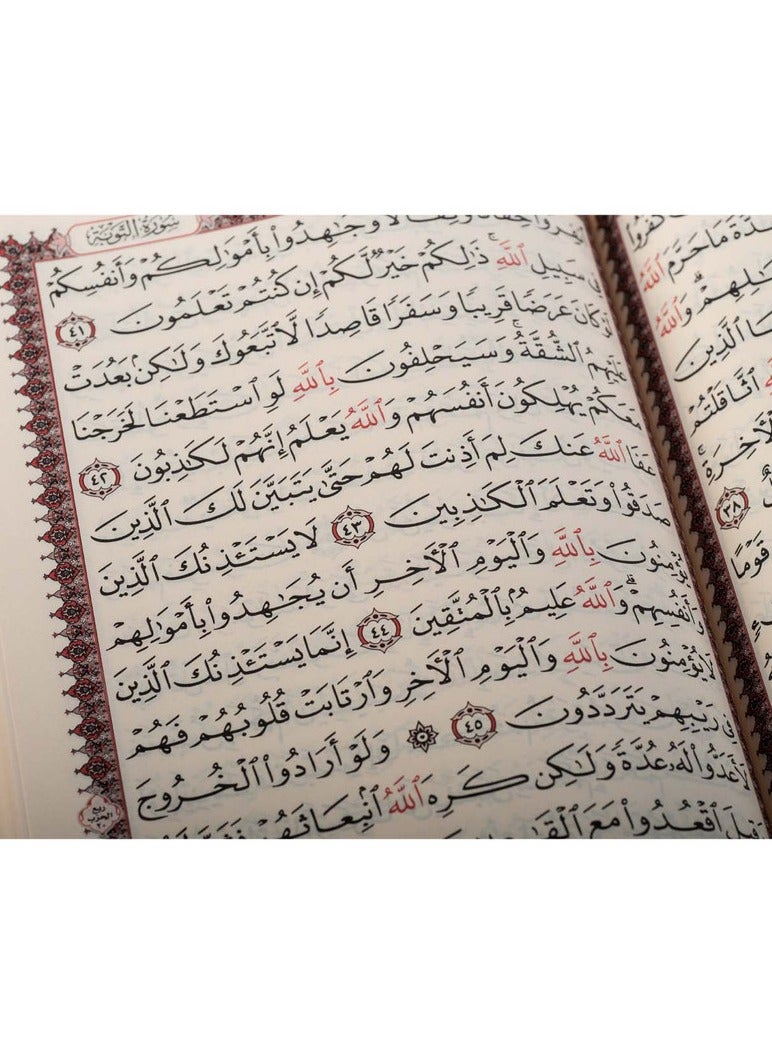 سُورَةُ التَّوْبَةِ
وَجَٰهِدُوا۟ بِأَمْوَٰلِكُمْ وَأَنفُسِكُمْ
فِى سَبِيلِ ٱللَّهِ ۚ ذَٰلِكُمْ خَيْرٌ لَّكُمْ إِن كُنتُمْ تَعْلَمُونَ ٤١
لَوْ كَانَ عَرَضًا قَرِيبًا وَسَفَرًا قَاصِدًا لَّٱتَّبَعُوكَ وَلَٰكِنۢ بَعُدَتْ
عَلَيْهِمُ ٱلشُّقَّةُ ۚ وَسَيَحْلِفُونَ بِٱللَّهِ لَوِ ٱسْتَطَعْنَا لَخَرَجْنَا
مَعَكُمْ يُهْلِكُونَ أَنفُسَهُمْ وَٱللَّهُ يَعْلَمُ إِنَّهُمْ لَكَٰذِبُونَ ٤٢
عَفَا ٱللَّهُ عَنكَ لِمَ أَذِنتَ لَهُمْ حَتَّىٰ يَتَبَيَّنَ لَكَ ٱلَّذِينَ
صَدَقُوا۟ وَتَعْلَمَ ٱلْكَٰذِبِينَ ٤٣ لَا يَسْتَـْٔذِنُكَ ٱلَّذِينَ
يُؤْمِنُونَ بِٱللَّهِ وَٱلْيَوْمِ ٱلْـَٔاخِرِ أَن يُجَٰهِدُوا۟ بِأَمْوَٰلِهِمْ
وَأَنفُسِهِمْ ۗ وَٱللَّهُ عَلِيمٌۢ بِٱلْمُتَّقِينَ ٤٤ إِنَّمَا يَسْتَـْٔذِنُكَ ٱلَّذِينَ
لَا يُؤْمِنُونَ بِٱللَّهِ وَٱلْيَوْمِ ٱلْـَٔاخِرِ وَٱرْتَابَتْ قُلُوبُهُمْ فَهُمْ
فِى رَيْبِهِمْ يَتَرَدَّدُونَ ٤٥ وَلَوْ أَرَادُوا۟ ٱلْخُرُوجَ
لَأَعَدُّوا۟ لَهُۥ عُدَّةً وَلَٰكِن كَرِهَ ٱللَّهُ ٱنۢبِعَاثَهُمْ فَثَبَّطَهُمْ
وَقِيلَ ٱقْعُدُوا۟ مَعَ
ربع
الحزب
٢٠
كَفَرُوا
مَا حَرَّمَ ٱللَّهُ
وَٱللَّهُ
ٱلَّذِينَ
ٱثَّاقَلْتُمْ
ٱلْـَٔاخِرَةِ ۚ
٣٨
قَوْمًا